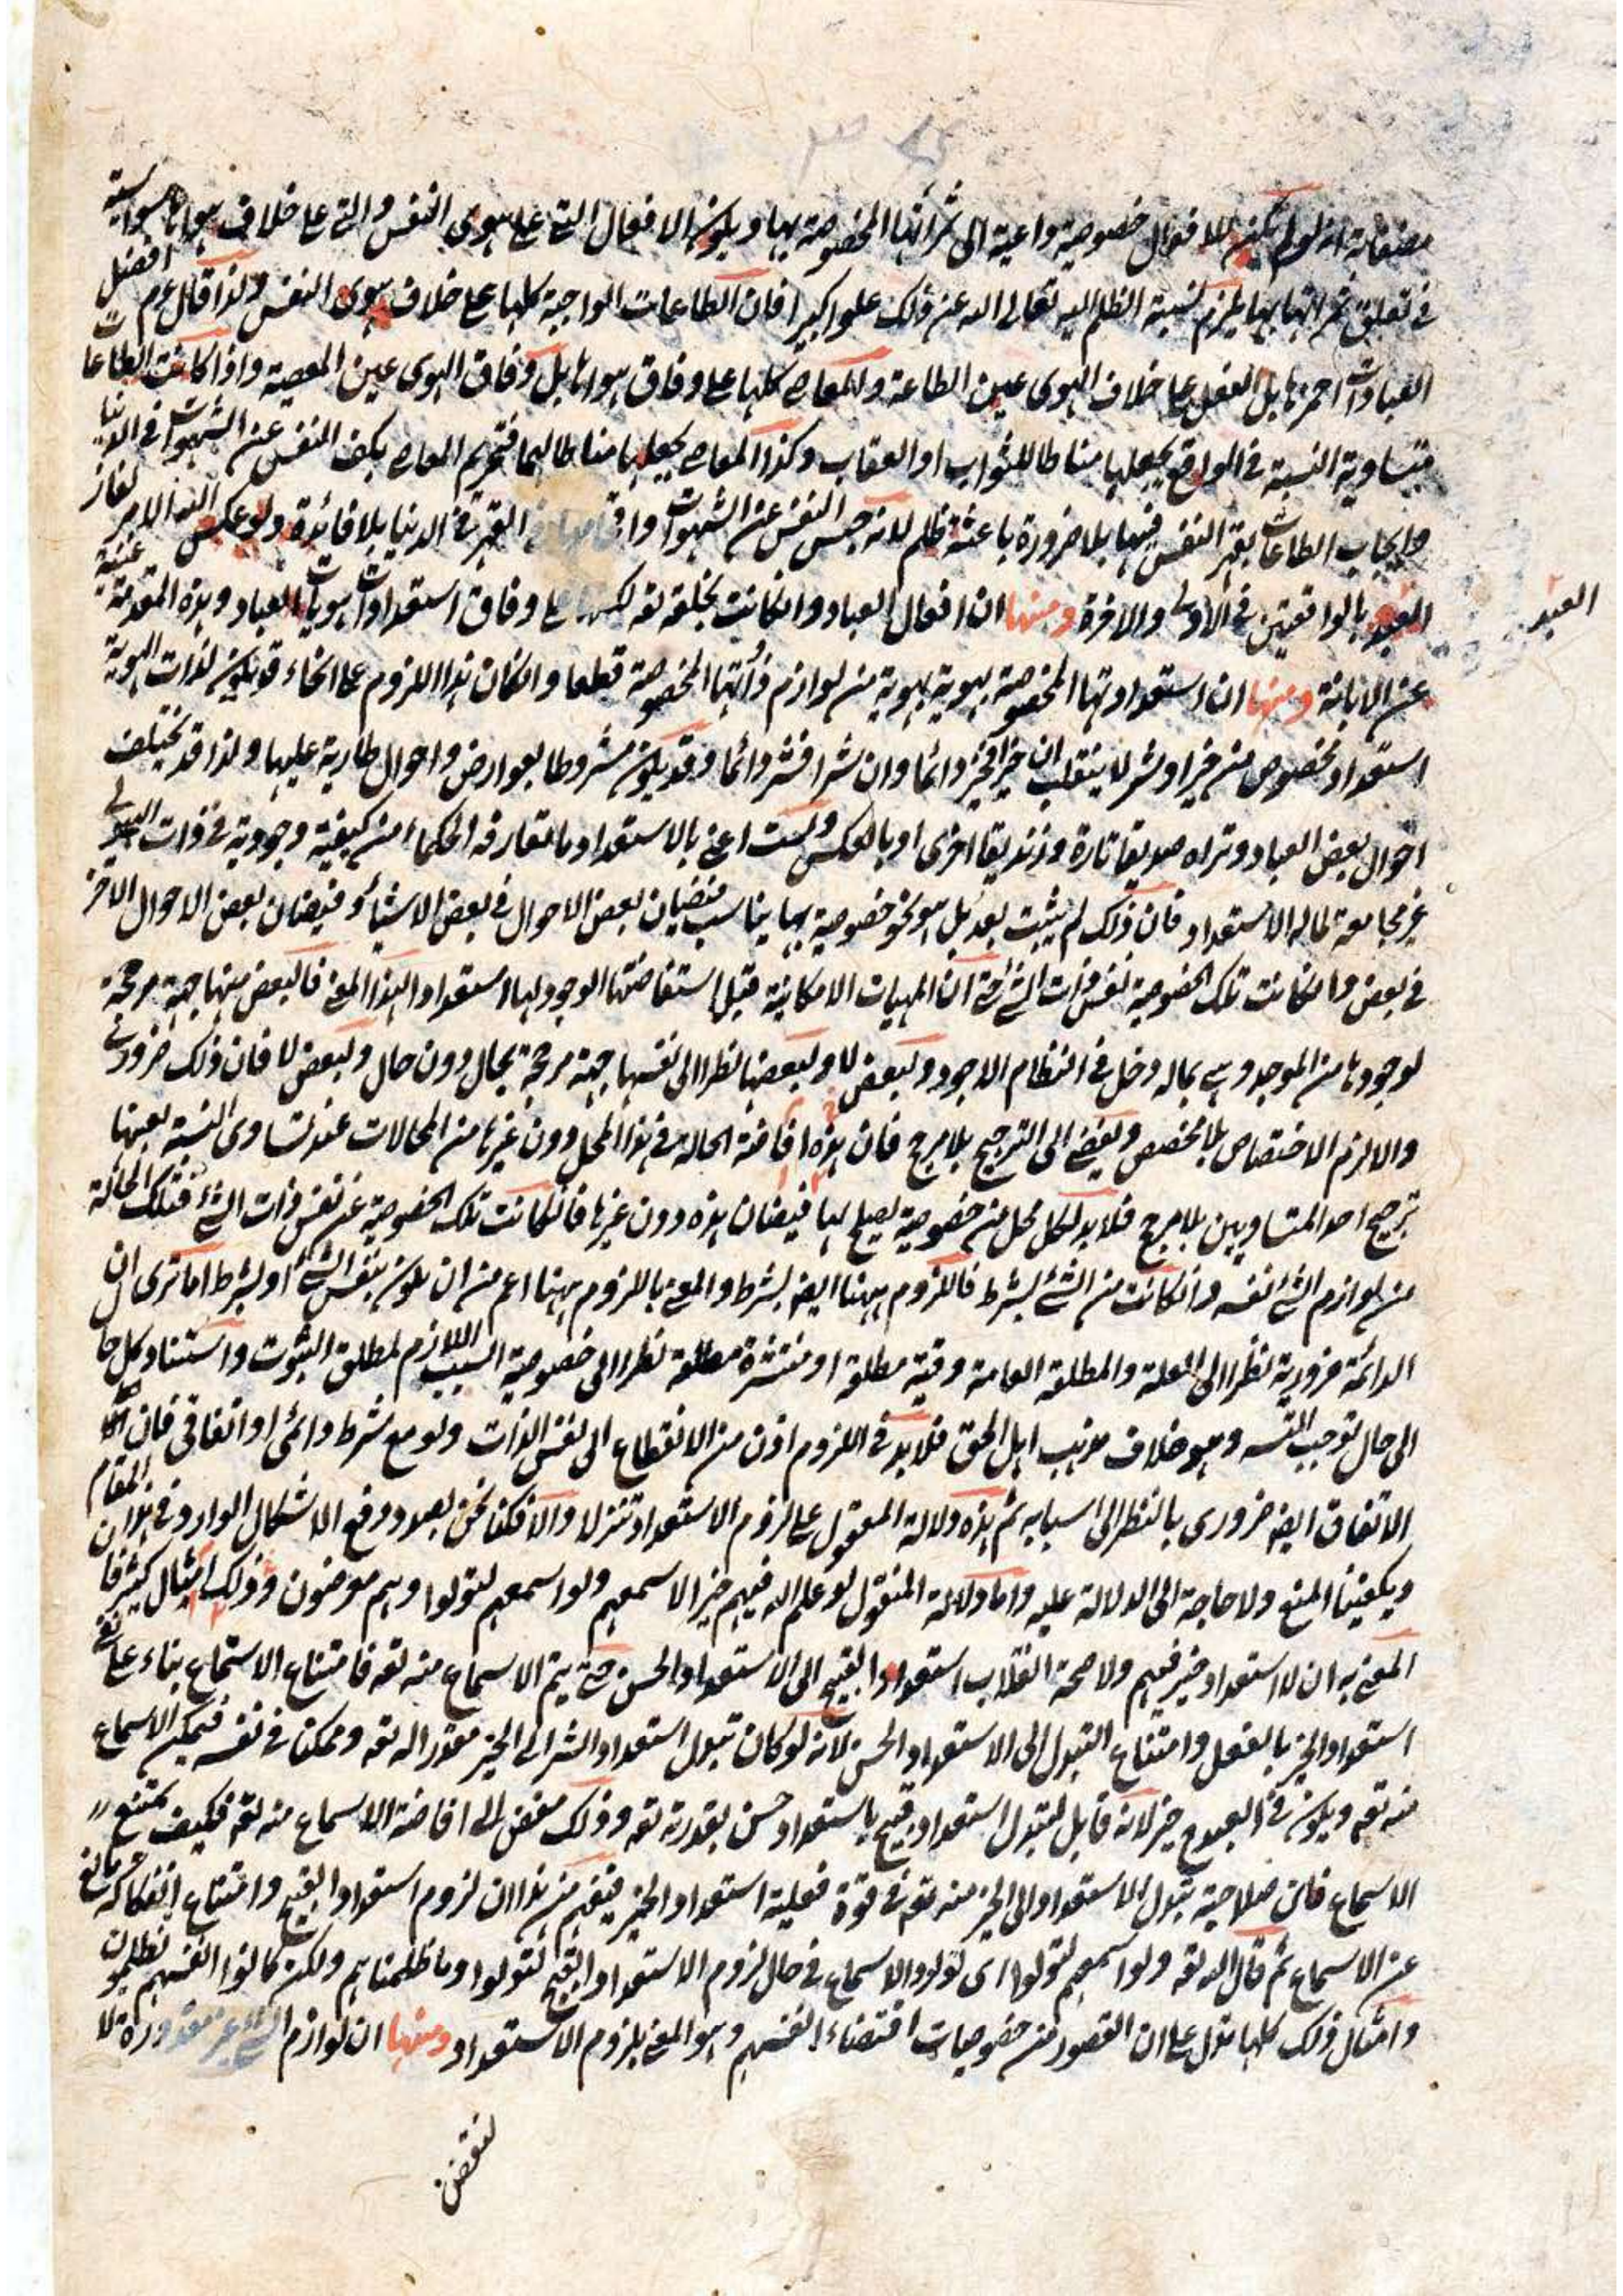 مصنفاته انه لو لم يكن للافعال خصوصية داعية الى ثمراتها المخصوصة بها ويكون الافعال التي على هوى النفس والتي على خلاف هواها سواسية
في تعلق ثمراتها بها يلزم نسبة الظلم اليه تعالى الله عن ذلك علوا كبيرا فان الطاعات الواجبة كلها على خلاف هوى النفس ولذا قال عم افضل
العبادات احمزها بل الفعل على خلاف الهوى عين الطاعة والمعاصي كلها على وفاق هواها بل وفاق الهوى عين المعصية واذا كانت الطاعات
متساوية النسبة في الواقع بجعلها مناطا للثواب او العقاب وكذا المعاصي بجعلها مناطا لهما فتحريم المعاصي بكف النفس عن الشهوات في الدنيا
وايجاب الطاعات بقهر النفس فيها بلا ضرورة باعثة ظلم لانه حبس النفس عن الشهوات القهر في الدنيا بلا فائدة ولو عكس الله الامر لفاز
العبد بالواقعتين في الاولى والاخرة ومنها ان افعال العباد وان كانت بخلقه تعه لكنها على وفاق استعدادات هويات العباد وهذه المقدمة غنية
العبد
عن الابانة ومنها ان استعداداتها المخصوصة بهوية هوية من لوازم ذاتها المخصوصة قطعا وان كان هذا اللزوم على انحاء قد يكون لذات الهوية
استعداد مخصوص من خير او شر لا ينقلب ان خيرا فخير دائما وان شرا فشر دائما وقد يكون مشروطا بعوارض واحوال طارية عليها ولذا قد يختلف
احوال بعض العباد وتراه صديقا تارة وزنديقا اخرى او بالعكس ولست اعني بالاستعداد ما تعارفه الحكماء من كيفية وجودية في ذات الهيولى
غير مجامعة لما له الاستعداد فان ذلك لم يثبت بعد بل هو نحو خصوصية بها يناسب فيضان بعض الاحوال في بعض الاشياء وفيضان بعض الاحوال الاخر
في بعض وان كانت تلك الخصوصية نفس ذات الشئ حتى ان المهيات الامكانية قبل استفاضتها الوجود لها استعداد بهذا المعنى فالبعض منها جهة مرجحة
لوجودها من الموجد وهي بماله دخل في النظام الاجود ولبعض لا ولبعضها نظرا الى نفسها جهة مرجحة بحال دون حال ولبعض لا فان ذلك ضروري
والا لزم الاختصاص بلا مخصص ويفضي الى الترجيح بلا مرجح فان هذه افاضة الحالة في هذا المحل دون غيرها من المحالات عند تساوى النسبة بعينها
ترجيح احد المتساويين بلا مرجح فلا بد لكل محل من خصوصية يصلح لها فيضان هذه دون غيرها فان كانت تلك الخصوصية عن نفس ذات الشئ فتلك الحالة
من لوازم الشئ نفسه وان كانت من الشئ بشرط فاللزوم ههنا ايضا بشرط والمعنى باللزوم ههنا اعم من ان يكون بنفس الشئ او بشرط اما ترى ان
الدائمة ضرورية نظرا الى العلة والمطلقة العامة وقتية مطلقة او منتشرة مطلقة نظرا الى خصوصية السبب اللازم لمطلق الثبوت واستناد كل حال
الى حال توجب التسه وهو خلاف مذهب اهل الحق فلا بد في اللزوم اذن من الانقطاع الى نفس الذات ولو مع شرط دائمى او اتفاقى فان
الاتفاق ايضا ضرورى بالنظر الى اسبابه ثم هذه دلالة المعقول على لزوم الاستعداد تنزلا والا فكنا نحن بصدد دفع الاشكال الوارد في هذا المقام
ويكفينا المنع ولا حاجة الى الدلالة عليه واما دلالة المنقول لو علم الله فيهم خيرا لاسمعهم ولو اسمعهم لتولوا وهم معرضون وذلك امثال كثيرة فان
المعنى به ان لا استعداد خير فيهم ولا صحة انقلاب استعداد القبيح الى الاستعداد الحسن حتى يتم الاسماع منه تعه فامتناع الاستماع بناء على نفي
استعداد الخير بالفعل وامتناع التبدل الى الاستعداد الحسن لانه لو كان تبدل استعداد الشر الى الخير مقدورا له تعه وممكنا في نفسه فيمكن الاسماع
منه تعه ويكون في البعد خير لانه قابل لتبدل استعداد قبيح باستعداد حسن بقدرته تعه وذلك مفض الى افاضة الاسماع منه تعه فكيف يمتنع
الاسماع فان صلاحية تبدل الاستعداد الى الخير منه تعه في قوة فعلية استعداد الخير فيفهم من هذا ان لزوم استعداد القبيح وامتناع انفكاكه مانع
عن الاسماع ثم قال الله تعه ولو اسمعهم لتولوا اى لو ارادوا الاسماع في حال لزوم الاستعداد القبيح لتولوا وما ظلمناهم ولكن كانوا انفسهم يظلمون
وامثال ذلك كلها تدل على ان القصور من خصوصيات اقتضاء انفسهم وهو المعنى بلزوم الاستعداد ومنها ان لوازم الشئ غير مقدورة لا
لنقض